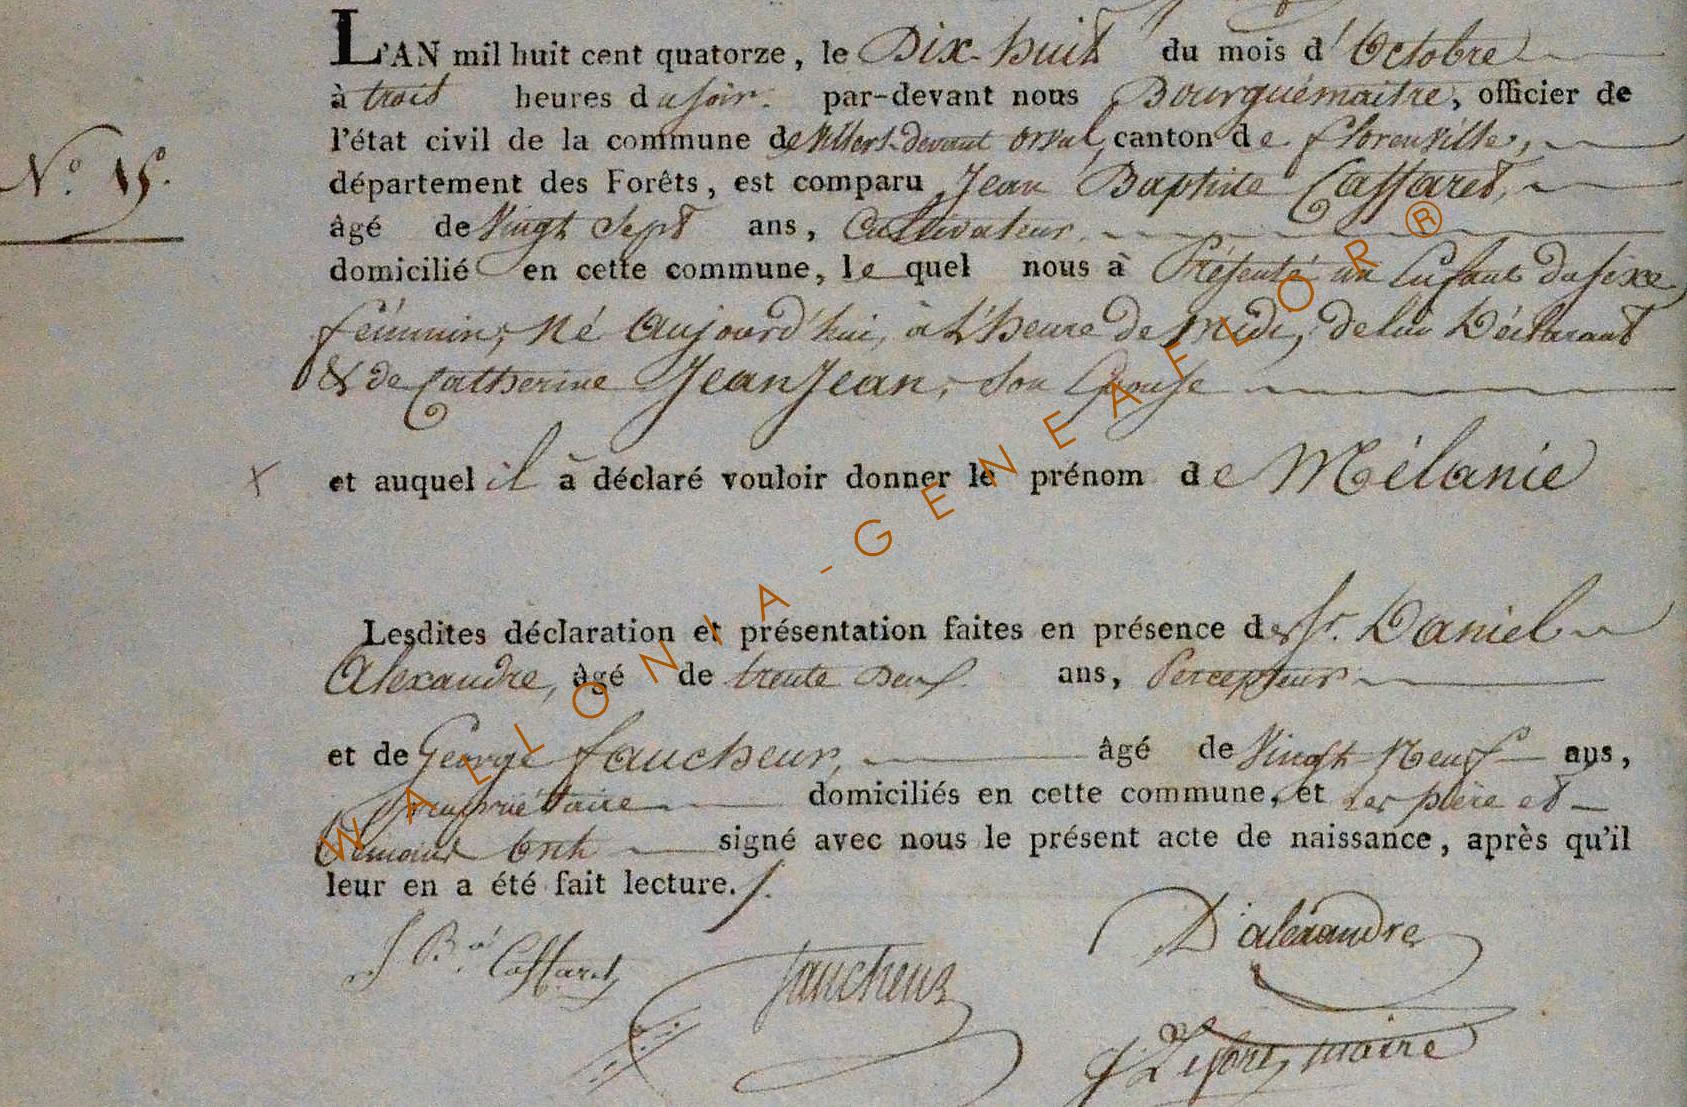 L'AN mil huit cent quatorze, le Dix-huit du mois d'Octobre
à trois heures du soir. par-devant nous Bourguémaitre, officier de
l'état civil de la commune de Villers-devant orval, canton de florenville,
N.° 15.
département des Forêts, est comparu Jean Baptiste Caffaret,
âgé de Vingt Sept ans, Cultivateur
domicilié en cette commune, le quel nous à Présenté un Enfant du sexe
féminin, né Aujourd'hui, à L'heure de midi, de lui Déclarant
& de Catherine JeanJean, son Epouse
et auquel il à déclaré vouloir donner le prénom de Mélanie
Lesdites déclaration et présentation faites en présence de Sr. Daniel
Alexandre, âgé de trente Deux ans, Percepteur
et de George faucheur, âgé de Vingt Neuf ans,
propriétaire domiciliés en cette commune, et les père et
témoins ont signé avec nous le présent acte de naissance, après qu'il
leur en a été fait lecture./.
J Bte Caffaret faucheur D'alexandre
maire
WALLONIA-GENEAFLOR®